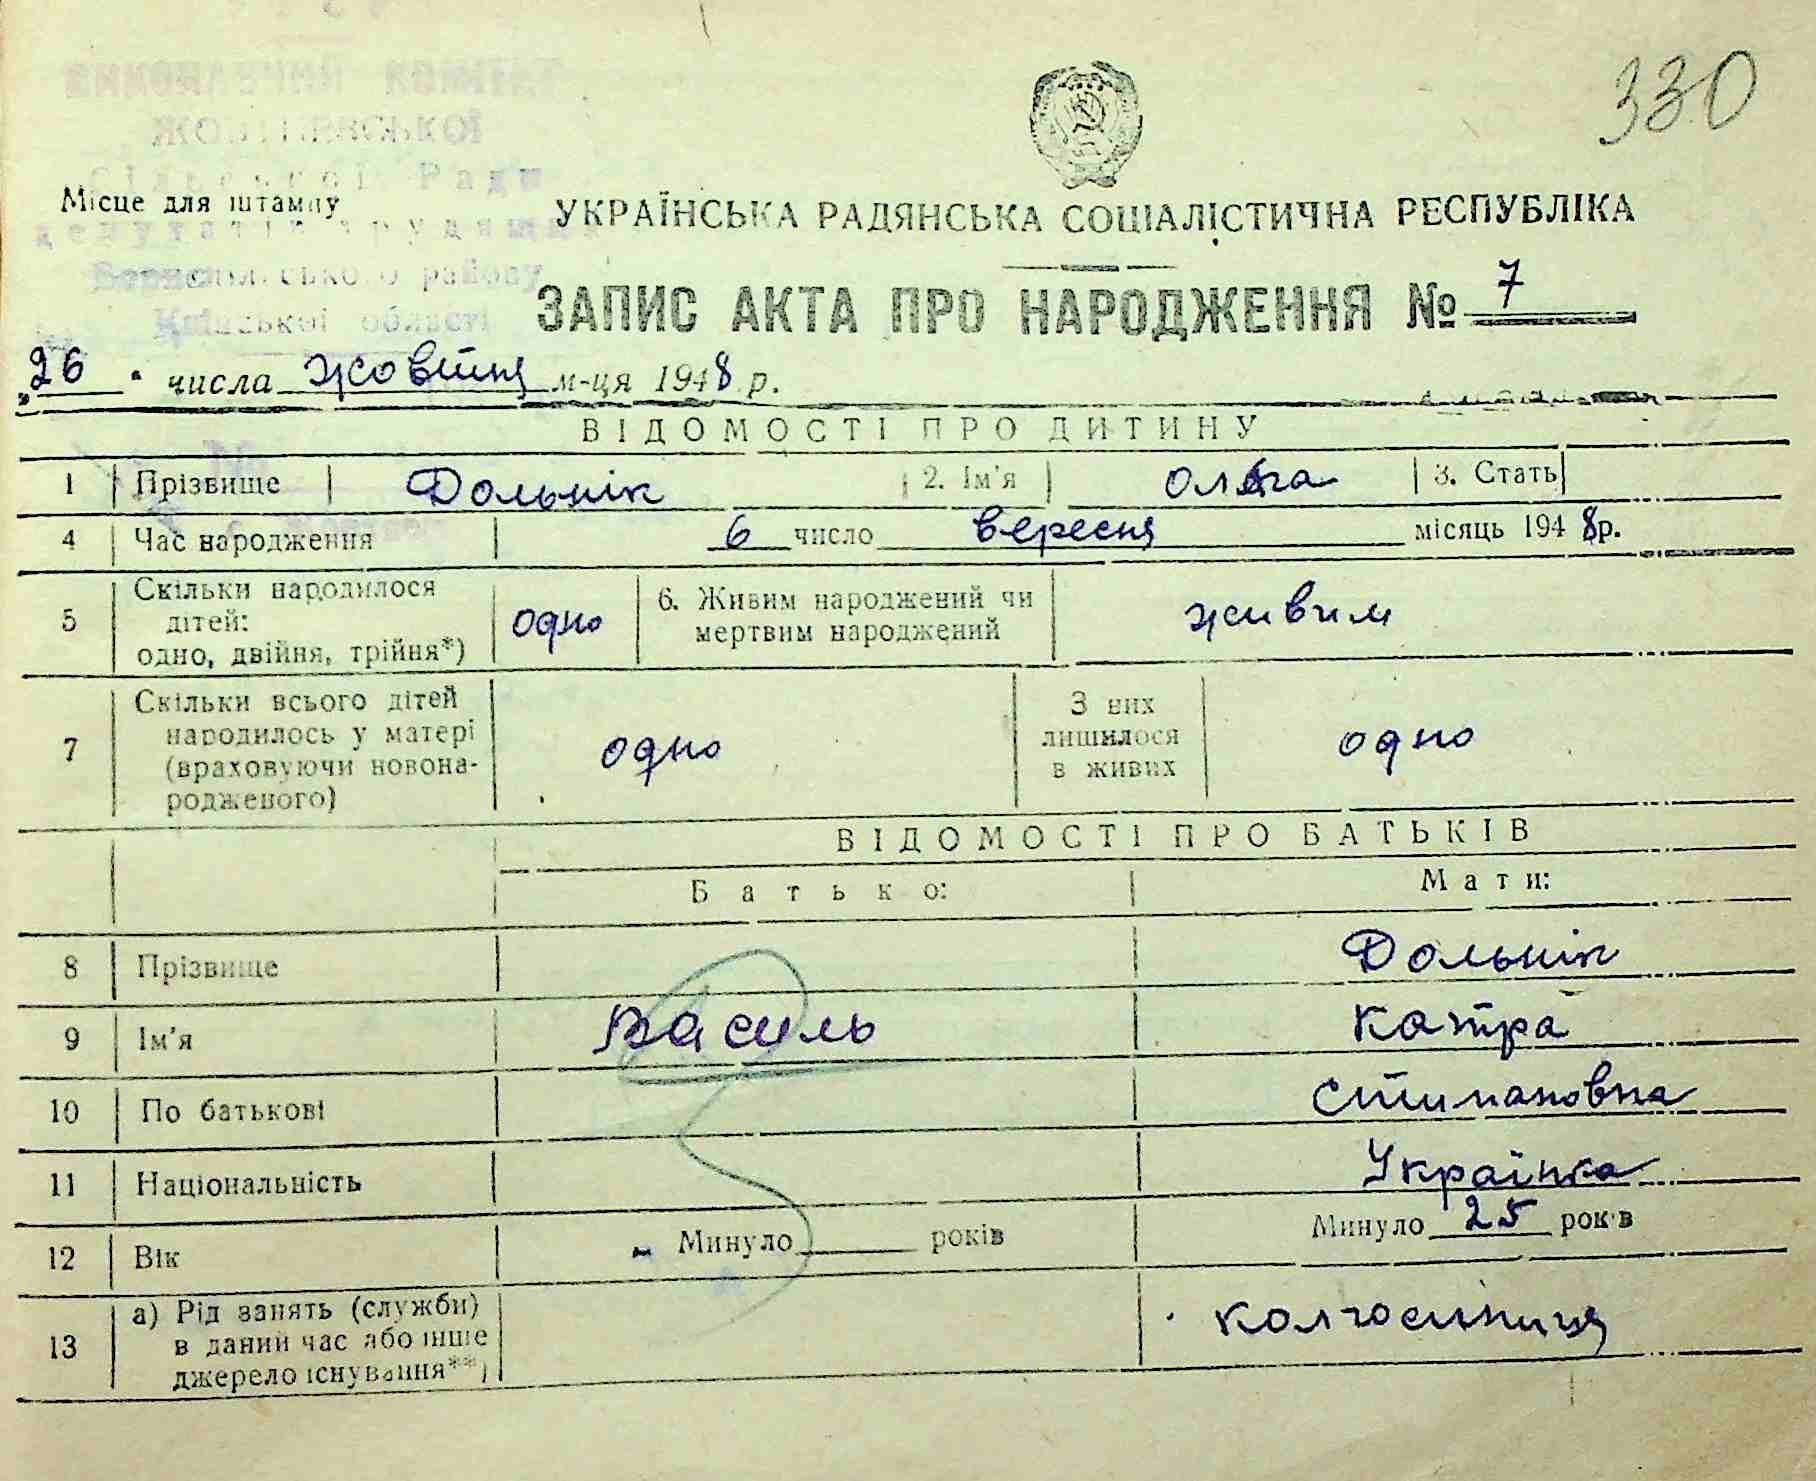 330
ВИКОНАВЧИЙ КОМІТЕТ
ЖОВТНЕВСЬКОЇ
сільської Ради
Місце для штампу
депутатів трудящих
УКРАЇНСЬКА РАДЯНСЬКА СОЦІАЛІСТИЧНА РЕСПУБЛІКА
Бориспільського району
Київської області
ЗАПИС АКТА ПРО НАРОДЖЕННЯ № 7
„26“ числа жовтня м-ця 1948 р.
ВІДОМОСТІ ПРО ДИТИНУ
1 Прізвище Дольнік 2. Ім'я Ольга 3. Стать
4 Час народження 6 число вересня місяць 1948 р.
5 Скільки народилося дітей: одно, двійня, трійня*) одно 6. Живим народжений чи мертвим народжений живим
7 Скільки всього дітей народилось у матері (враховуючи новонародженого) одно З них лишилося в живих одно
ВІДОМОСТІ ПРО БАТЬКІВ
Батько: Мати:
8 Прізвище Дольнік
9 Ім'я Василь Катра
10 По батькові Стипановна
11 Національність Українка
12 Вік Минуло років Минуло 25 років
13 а) Рід занять (служби) в даний час або інше джерело існування**) колгоспниця